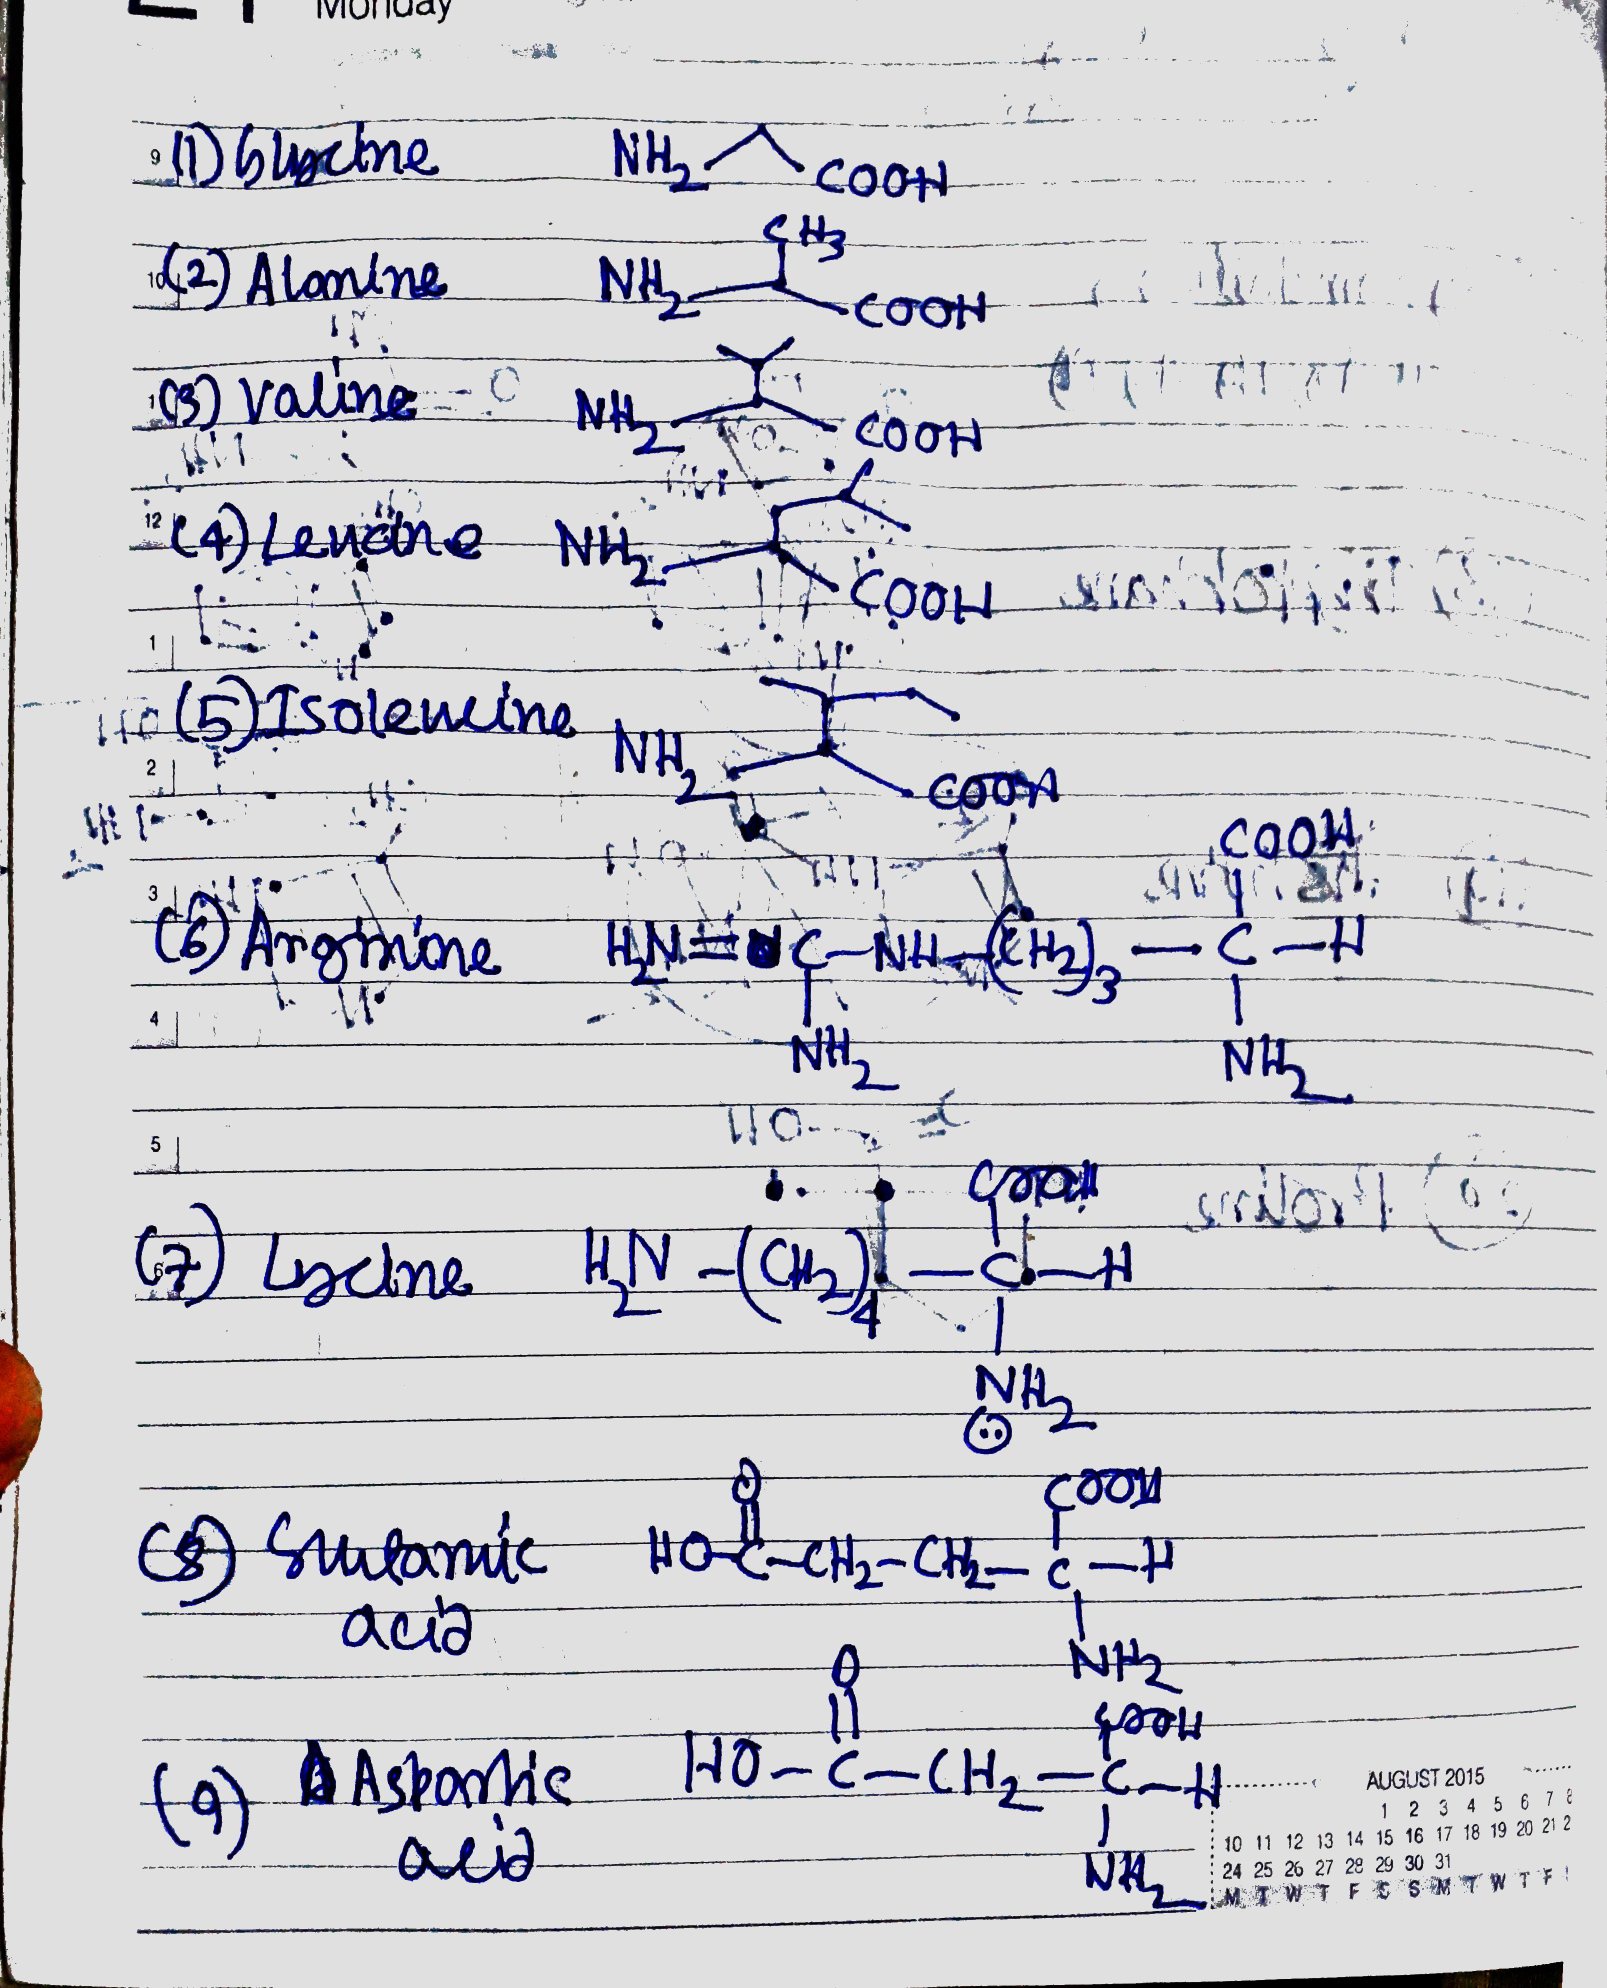 Monday
9 (1) Glycine NH2 COOH
CH3
10 (2) Alanine NH2 COOH
1 (3) Valine NH2 COOH
12 (4) Leucine NH2 COOH
1
(5) Isoleucine NH2 COOH
2
COOH
3
(6) Arginine H2N = C - NH - (CH2)3 - C - H
4 NH2 NH2
5
COOH
(7) Lycine H2N - (CH2)4 - C - H
6
NH2
O COOH
(8) Glutamic HO - C - CH2 - CH2 - C - H
acid NH2
O COOH
(9) Aspartic HO - C - CH2 - C - H
acid NH2
AUGUST 2015
1 2 3 4 5 6 7 8
10 11 12 13 14 15 16 17 18 19 20 21 2
24 25 26 27 28 29 30 31
M T W T F S S M T W T F